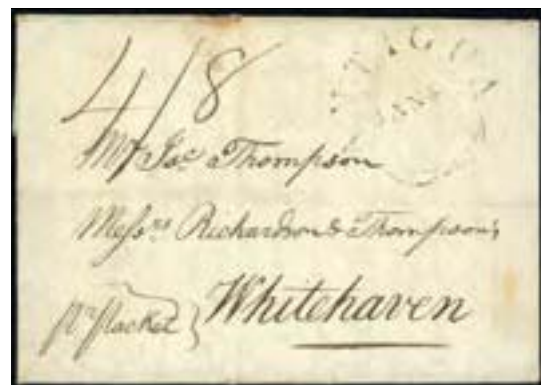 4/8
ANTIGUA
JAN
Mr Jos Thompson
Messrs Richardson & Thompson's
Whitehaven
pr Packet